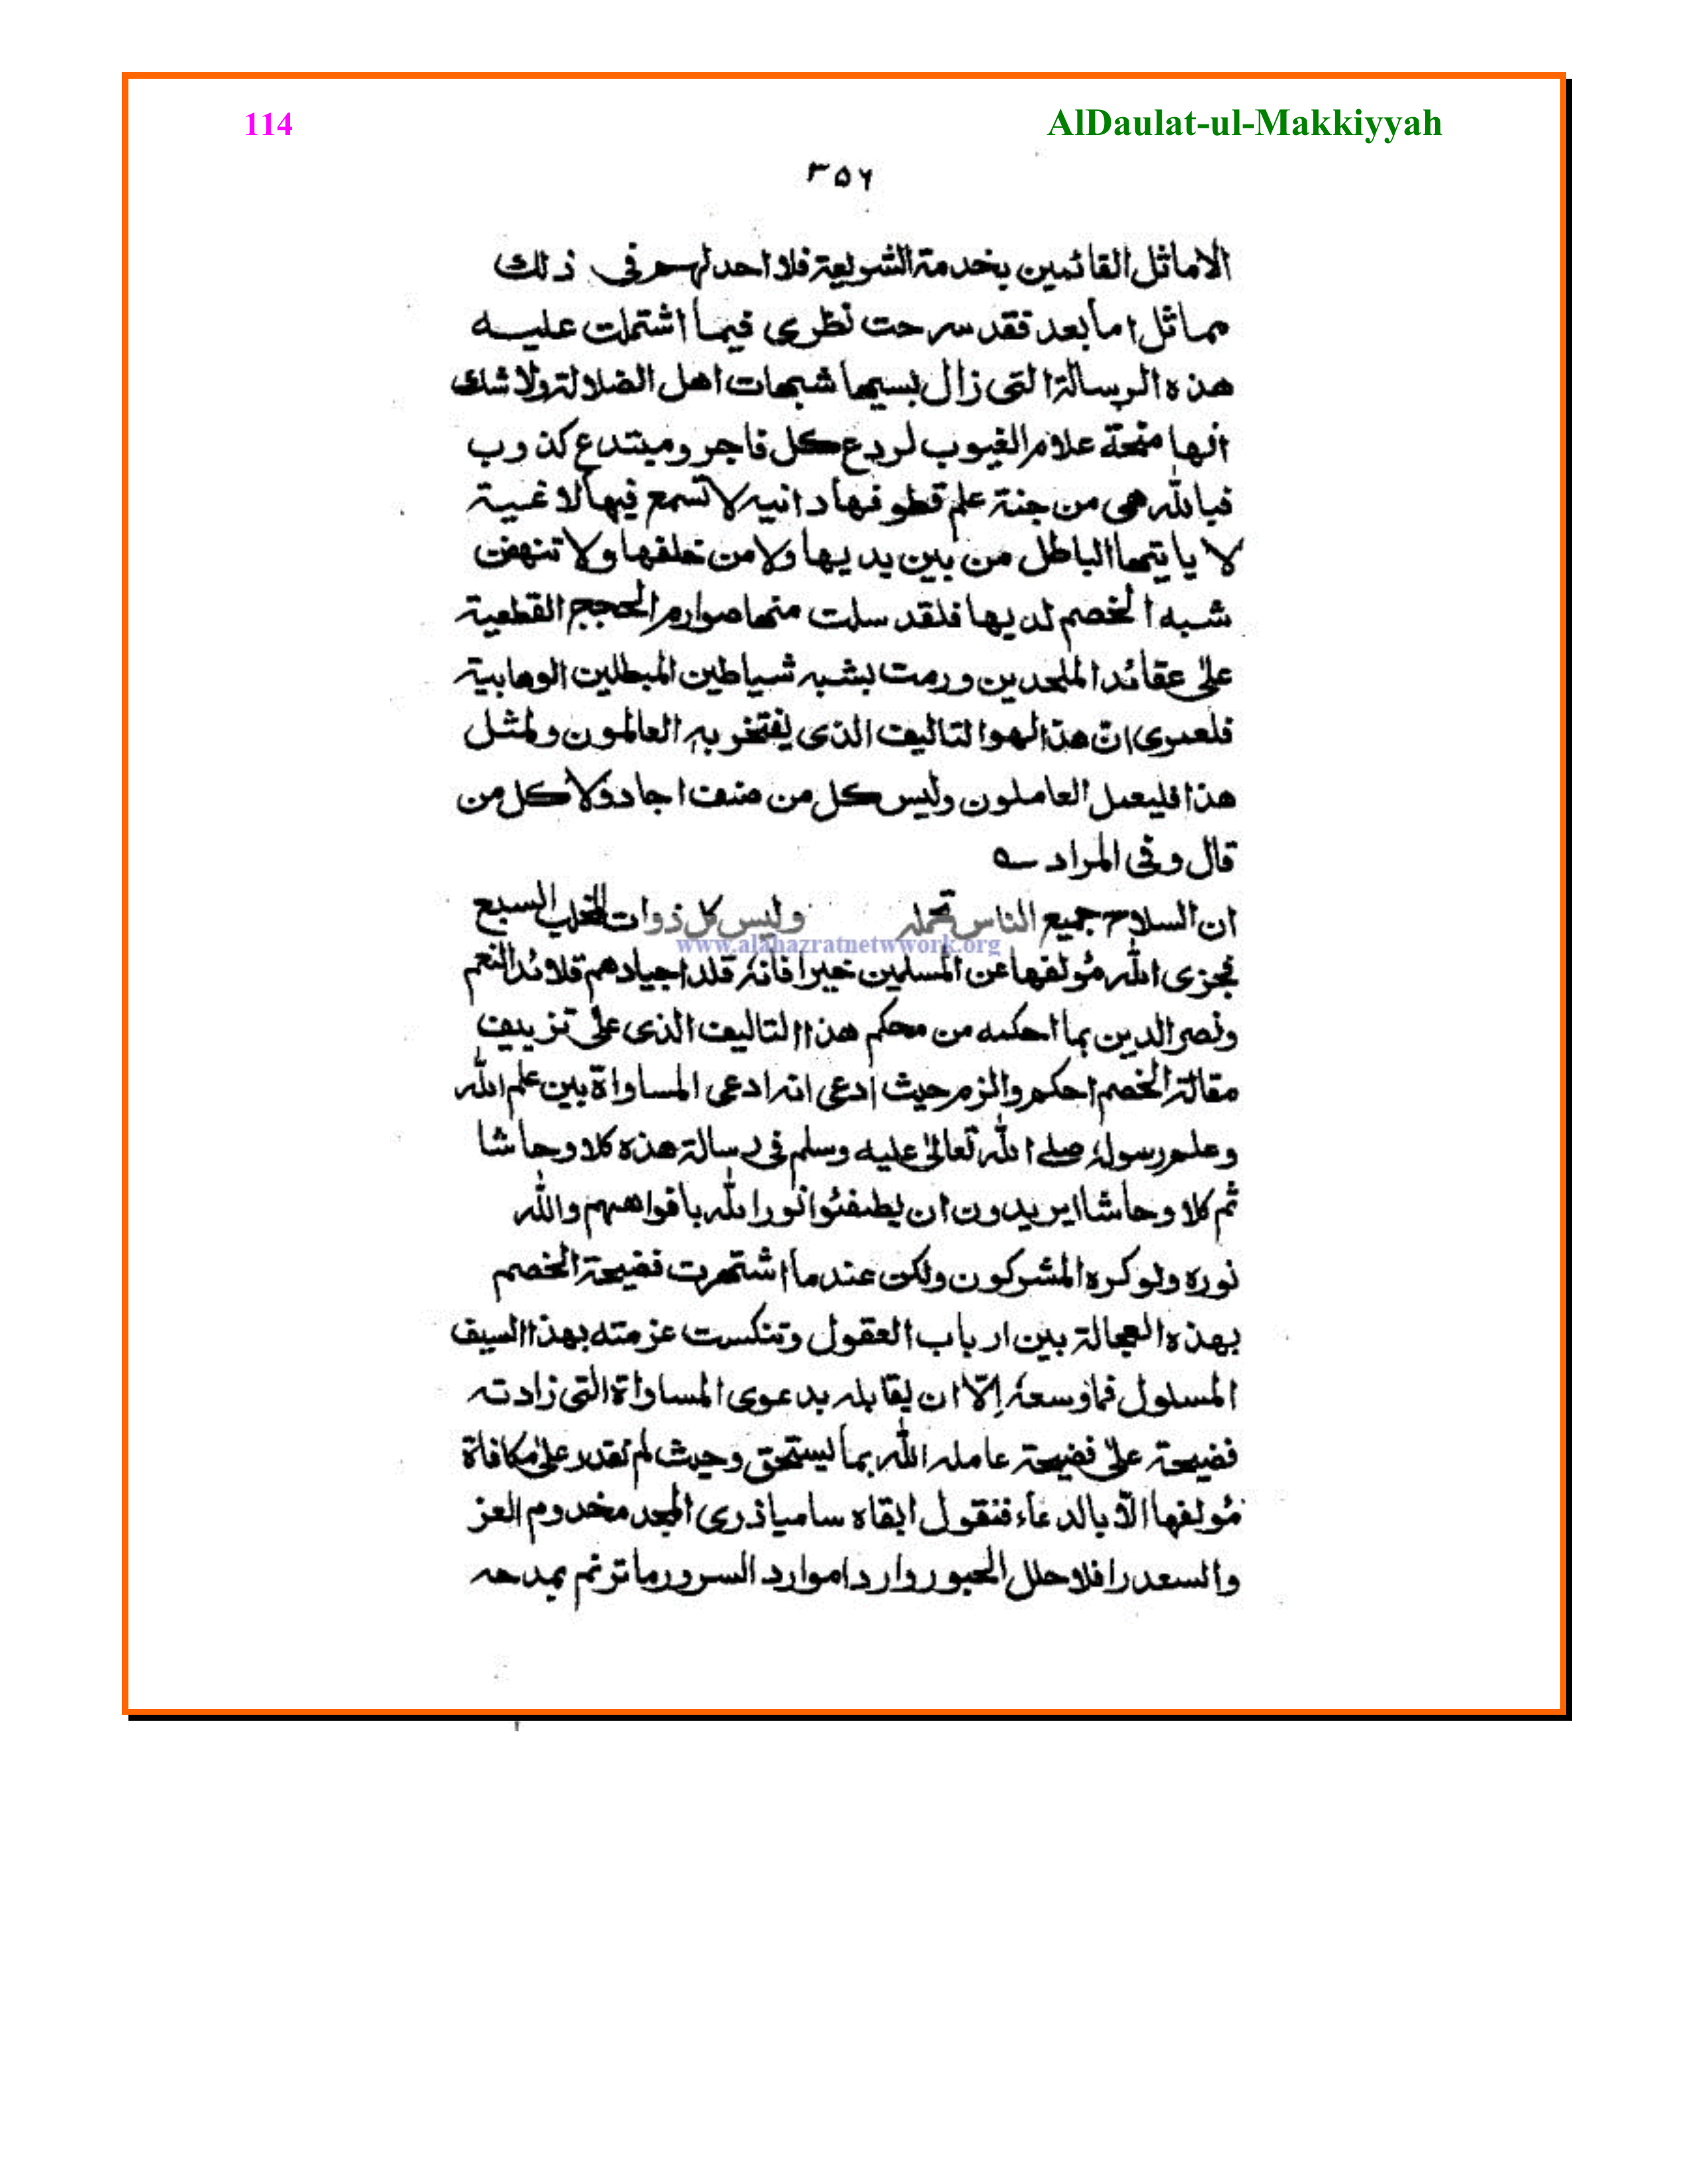 114 AlDaulat-ul-Makkiyyah
۳۵۶
الاماثل القائمين بخدمة الشريعة فلا احد لهم في ذلك
مماثل اما بعد فقد سرحت نظرى فيما اشتملت عليه
هذه الرسالة التى زال بسيها شبهات اهل الضلالة ولا شك
انها منحة علام الغيوب لردع كل فاجر ومبتدع كذوب
فيا لله هى من جنة علم قطوفها دانيه لا تسمع فيها لاغية
لا ياتيها الباطل من بين يديها ولا من خلفها ولا تنهض
شبه الخصم لديها فلقد سلت منها صوارم الحجج القطعية
علىٰ عقائد الملحدين ورمت بشبه شياطين المبطلين الوهابية
فلعمرى انّ هذا لهو التاليف الذى يفتخر به العالمون ولمثل
هذا فليعمل العاملون وليس كل من صنف اجاد ولا كل من
قال وفى المراد ے
ان السلاح جميع الناس تحمله وليس كل ذوات المخلب السبع
www.alahazratnetwwork.org
فجزى الله مؤلفها عن المسلمين خيرا فانه قلد اجيادهم قلائد النعم
ونصر الدين بما احكمه من محكم هذا التاليف الذى على تزييف
مقالة الخصم احكم والزم حيث ادعى انه ادعى المساواة بين علم الله
وعلم رسوله صلے الله تعالىٰ عليه وسلم فى رسالة هذه كلا وحاشا
ثم كلا وحاشا ايريدون ان يطفئوا نور الله بافواههم والله
نوره ولو كره المشركون ولكن عندما اشتهرت فضيحة الخصم
بهذه العجالة بين ارباب العقول وتنكست عزمته بهذا السيف
المسلول فما وسعهٗ اِلّا ان يقابله بدعوى المساواة التى زادته
فضيحة علىٰ فضيحة عامله الله بما يستحق وحيث لم نقدر علىٰ مكافاة
مؤلفها الّا بالدعاء فنقول ابقاه ساميا ذرى المجد مخدوم العز
والسعد رافلا حلل الحبور واردا موارد السرور ما ترنم بمدحه